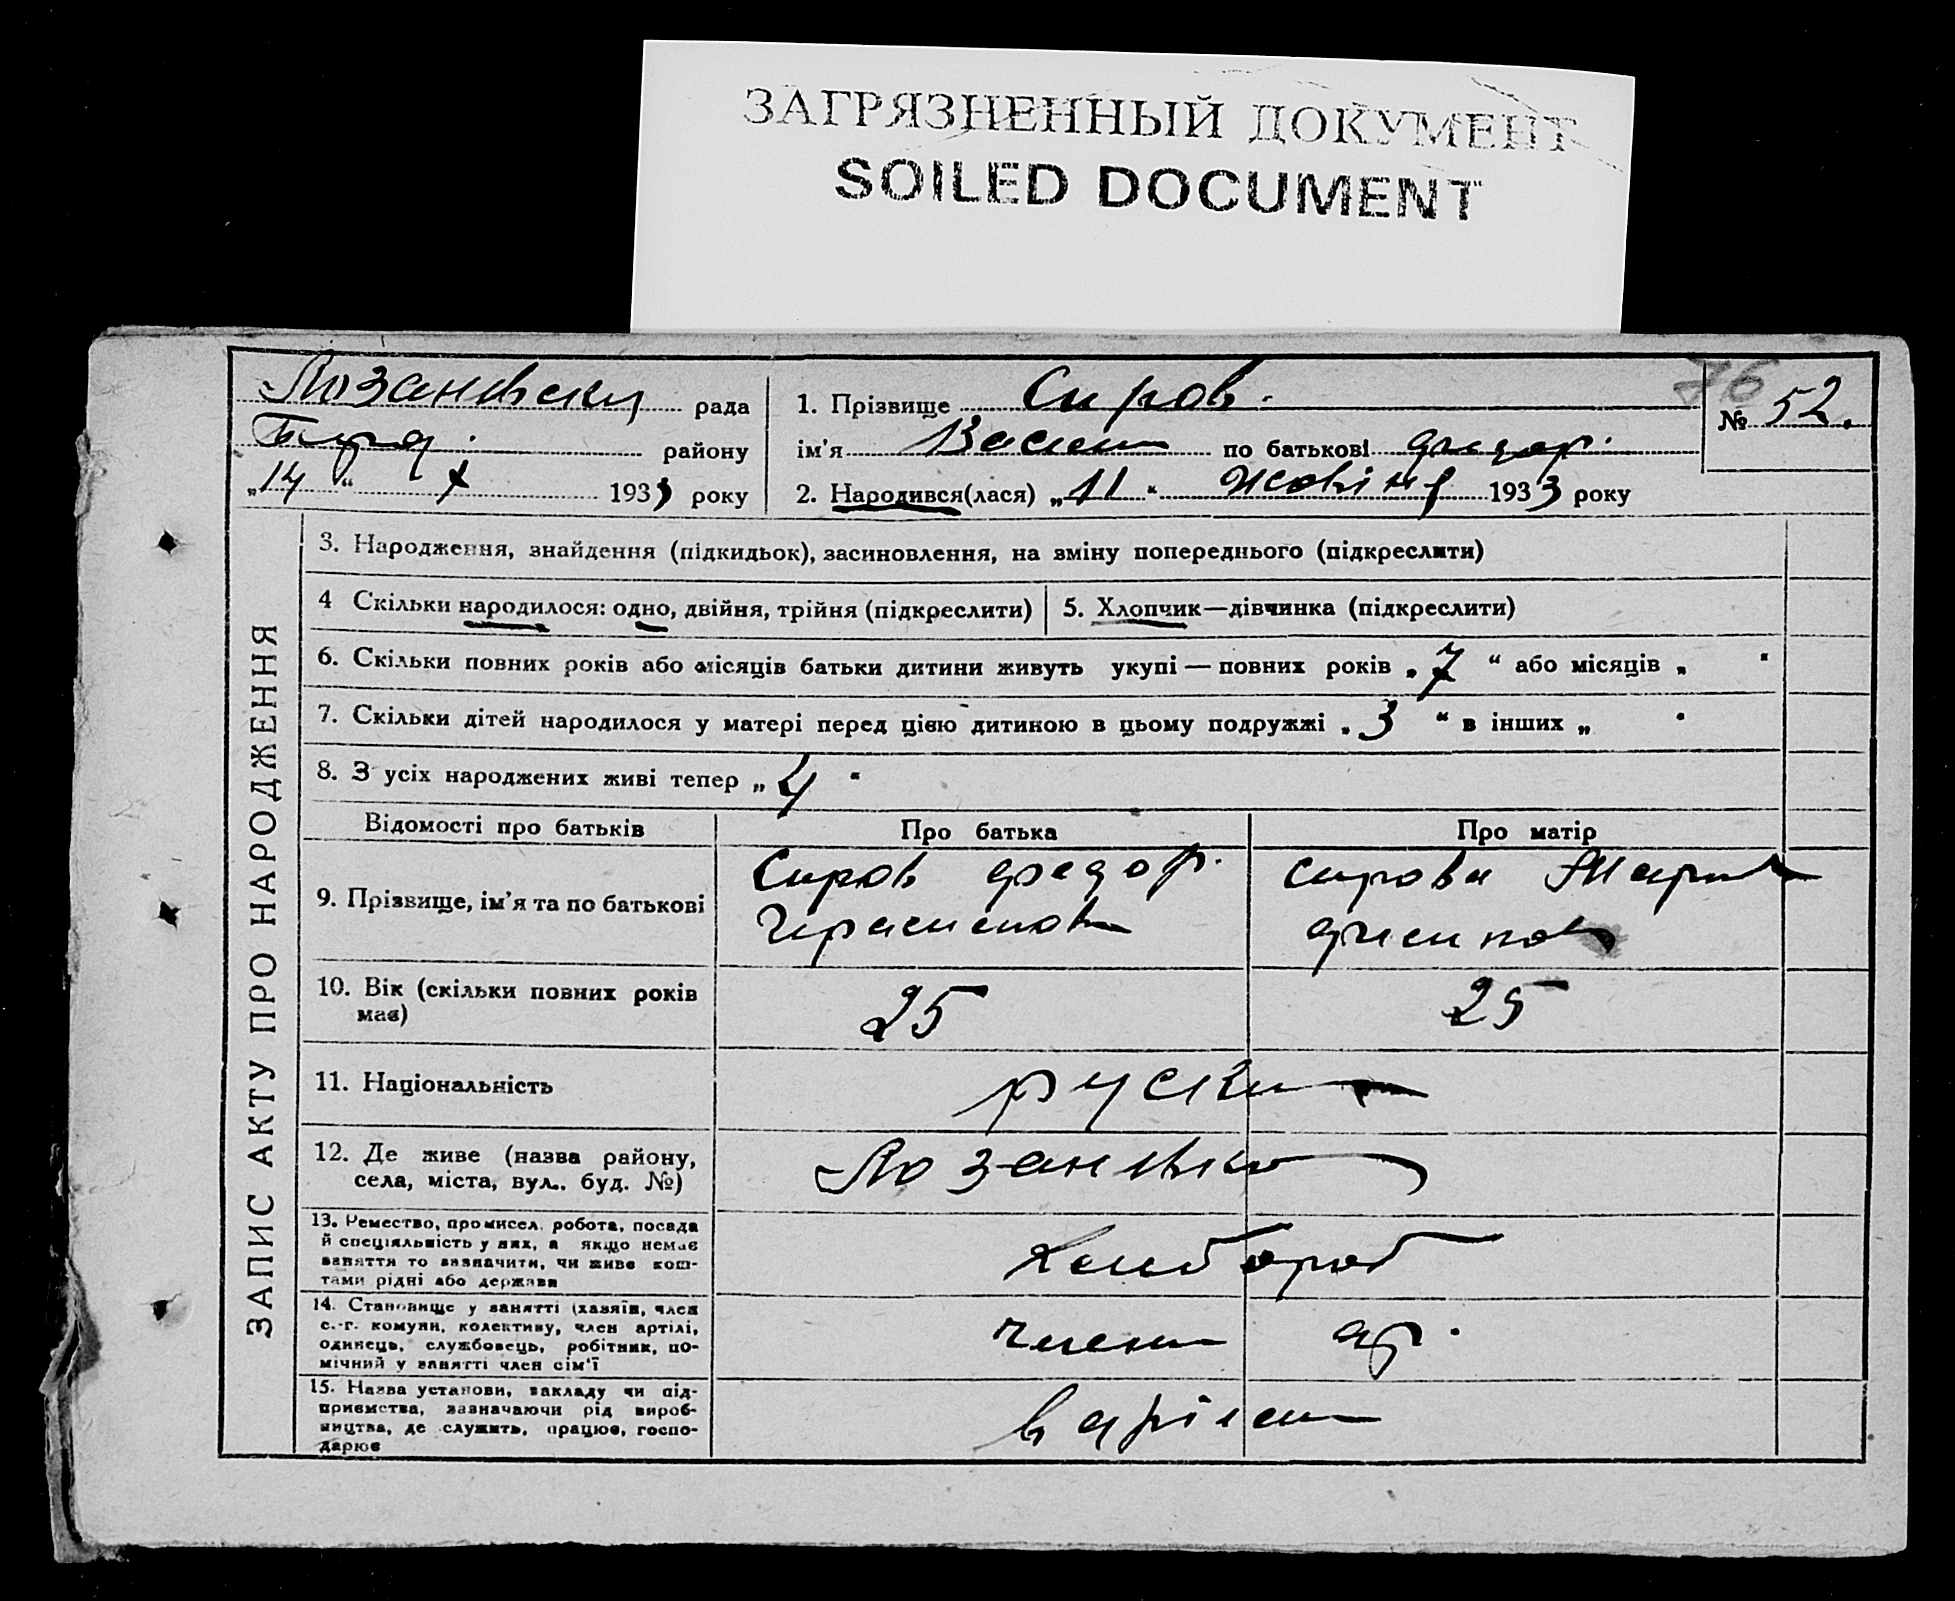 ЗАГРЯЗНЕННЫЙ ДОКУМЕНТ
SOILED DOCUMENT
76
рада
району
„14“ X 1933 року
1. Прізвище Сиров.
ім'я Васил по батькові
2. Народився(лася) „11“ Жовтня 1933 року
№ 52.
ЗАПИС АКТУ ПРО НАРОДЖЕННЯ
3. Народження, знайдення (підкидьок), засиновлення, на зміну попереднього (підкреслити)
4 Скільки народилося: одно, двійня, трійня (підкреслити)
5. Хлопчик—дівчинка (підкреслити)
6. Скільки повних років або місяців батьки дитини живуть укупі — повних років „7“ або місяців „ “
7. Скільки дітей народилося у матері перед цією дитиною в цьому подружжі „3“ в інших „ “
8. З усіх народжених живі тепер „4“
Відомості про батьків
Про батька
Про матір
9. Прізвище, ім'я та по батькові
Сиров Федор.
Сирова Мария
10. Вік (скільки повних років
має)
25
25
11. Національність
руски
12. Де живе (назва району,
села, міста, вул.. буд. №)
Лозановка
13. Ремество, промисел, робота, посада
й спеціяльність у них, а якщо немає
заняття то зазначити, чи живе кош-
тами рідні або держави
хлибороб
14. Становище у занятті (хазяїн, член
с.-г. комуни, колективу, член артілі,
одинець, службовець, робітник, по-
мічний у занятті член сім'ї
член ар.
15. Назва установи, закладу чи під-
приємства, зазначаючи рід вироб-
ництва, де служить, працює, госпо-
дарює
в